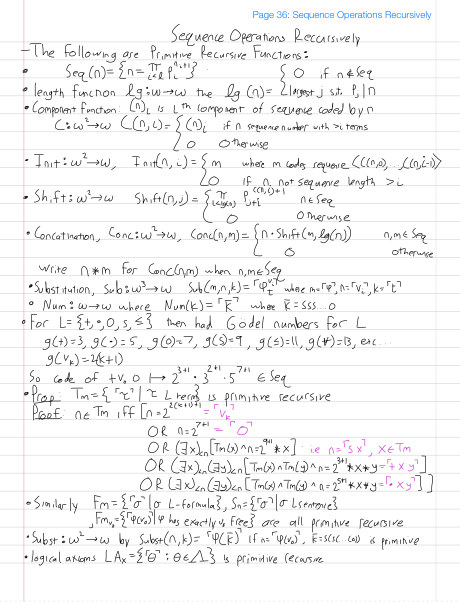 Page 36: Sequence Operations Recursively
Sequence Operations Recursively
- The following are Primitive Recursive Functions:
• Seq(n) = {n = π p_i^{n_i+1}} { 0 if n ∉ Seq
• length function lg: ω→ω the lg(n) = { largest j s.t. P_j | n
• Component function: (n)_i is ith component of sequence coded by n
C: ω²→ω C(n,i) = { (n)_i if n sequence number with >i terms
0 otherwise
• Init: ω²→ω, Init(n,i) = { m where m codes sequence (C(n,0), ..., C(n,i-1))
0 if n not sequence length >i
• Shift: ω²→ω Shift(n,j) = { π p_{j+i}^{C(n,i)+1} n∈Seq
0 otherwise
• Concatination, Conc: ω²→ω, Conc(n,m) = { n · Shift(m, lg(n)) n,m ∈ Seq
0 otherwise
write n*m for Conc(n,m) when n,m∈Seq
• Substitution, Sub: ω³→ω Sub(m,n,k) = ⌜φ⌝ where m=⌜φ⌝, n=⌜v_i⌝, k=⌜t⌝
• Num: ω→ω where Num(k) = ⌜k̄⌝ where k̄ = sss...0
• For L = {+, ·, 0, s, ≤} then had Godel numbers for L
g(+)=3, g(·)=5, g(0)=7, g(s)=9, g(≤)=11, g(∀)=13, etc...
g(v_k) = 2(k+1)
So code of +v_0 0 ↦ 2^{3+1} · 3^{2+1} · 5^{7+1} ∈ Seq
• Prop: Tm = {⌜τ⌝ | τ L term} is primitive recursive
Proof: n∈Tm iff [n = 2^{2(k+1)+1} = ⌜v_k⌝
OR n = 2^{7+1} = ⌜0⌝
OR (∃x)_{<n} [Tm(x) ∧ n = 2^{9+1} * x] i.e n = ⌜s x⌝, x∈Tm
OR (∃x)_{<n} (∃y)_{<n} [Tm(x) ∧ Tm(y) ∧ n = 2^{3+1} * x * y = ⌜+ x y⌝]
OR (∃x)_{<n} (∃y)_{<n} [Tm(x) ∧ Tm(y) ∧ n = 2^{5+1} * x * y = ⌜· x y⌝]]
• Similarly Fm = {⌜σ⌝ | σ L-formula}, Sn = {⌜σ⌝ | σ L sentence}
, Fm_{v_0} = {⌜φ(v_0)⌝ | φ has exactly v_0 free} are all primitive recursive
• Subst: ω²→ω by Subst(n,k) = ⌜φ(k̄)⌝ if n=⌜φ(v_0)⌝, k̄=s(s(...(0)) is primitive
• logical axioms LAx = {⌜θ⌝ : θ∈Λ} is primitive recursive